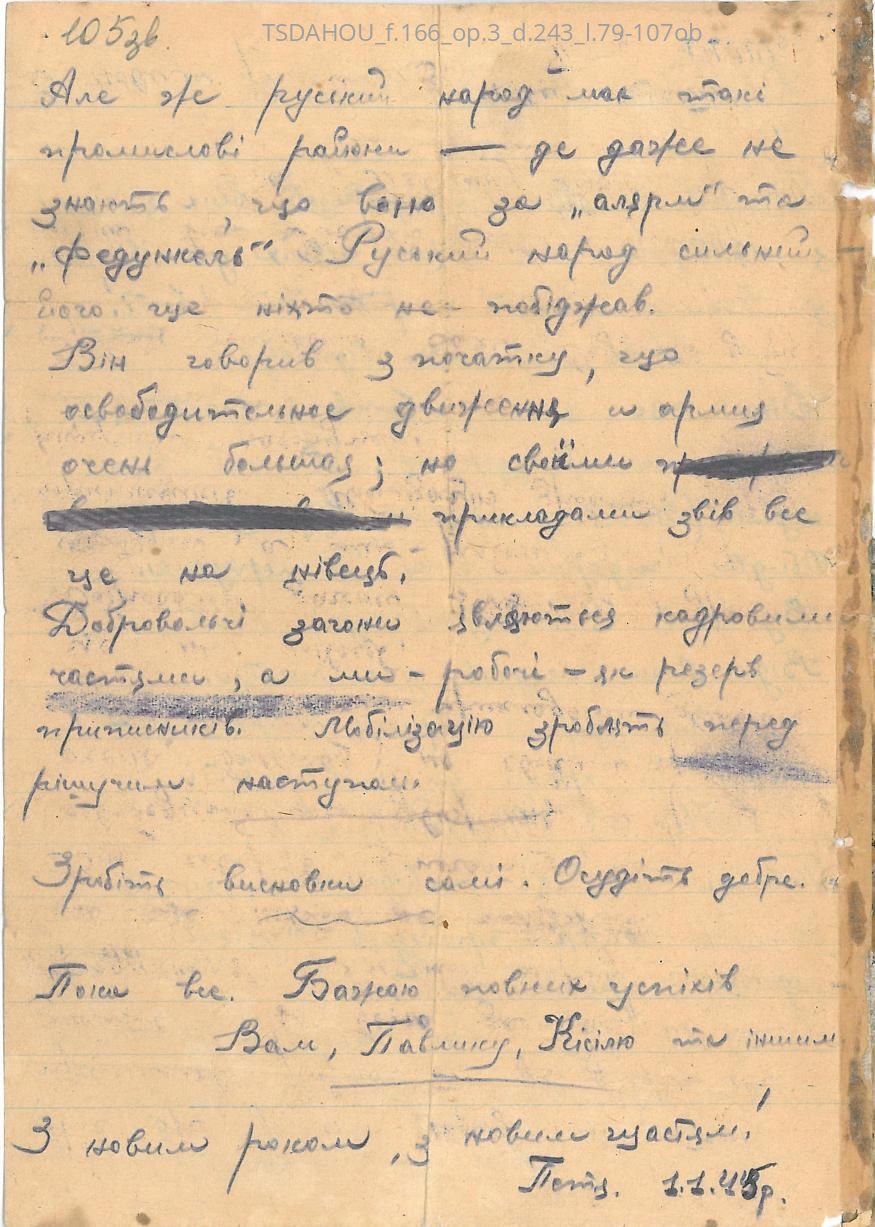 105зв
TSDAHOU_f.166_op.3_d.243_l.79-107ob
Але ж руський народ має такі
промислові райони — де даже не
знають, що воно за „алярм" та
„Федункель" Руський народ сильний —
його ще ніхто не побіджав.
Він говорив з початку, що
освободительное движення и армия
очень большая; но своїми
прикладами звів все
це на нівець.
Добровольчі загони являються кадровими
частями, а ми - робочі - як резерв
приписників. Мобілізацію зроблять перед
рішучим наступом.
Зробіть висновки самі. Осудіть добре.
Поки все. Бажаю повних успіхів
Вам, Павлику, Кісілю та іншим
З новим роком, з новим щастям!
Петя. 1.1.45р.